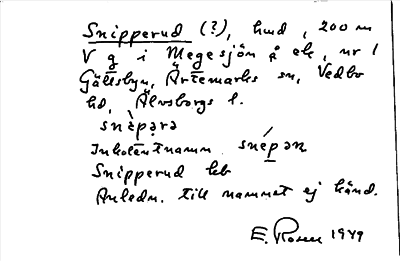 Snipperud (?), hmd, 200 m
V g i Megesjön å ek, nr 1
Gällsbyn, Ärtemarks sn, Vedbo
hd, Älvsborgs l.
snèpərə
Inkoléntnamn snépən
Snipperud kb
Anledn. till namnet ej känd.
E. Rosen 1949